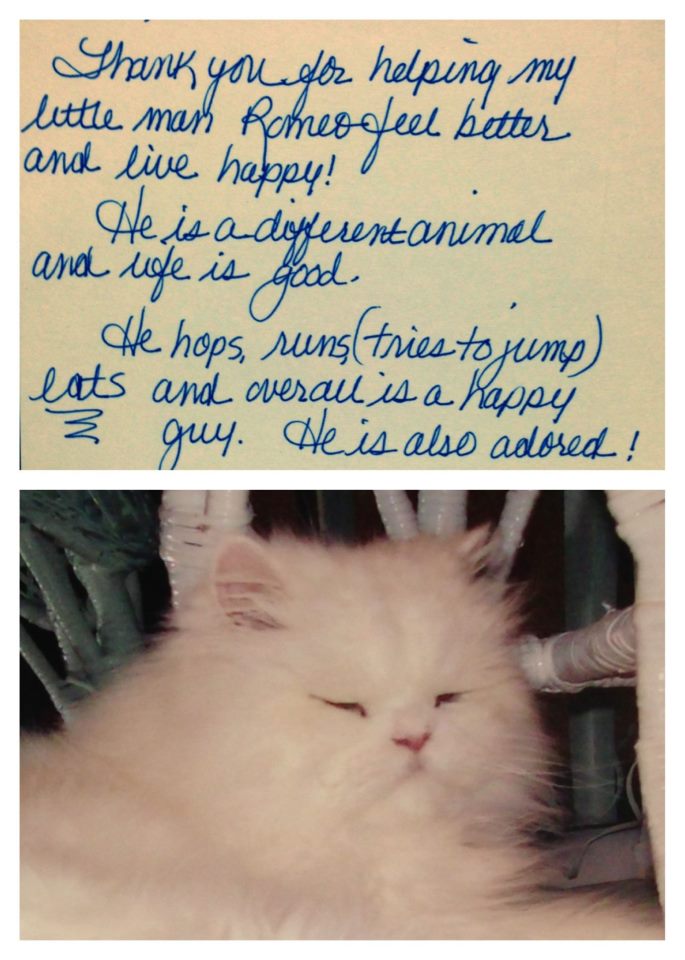 Thank you for helping my
little man Romeo feel better
and live happy!
He is a different animal
and life is good.
He hops, runs, (tries to jump)
eats and overall is a happy
guy. He is also adored!